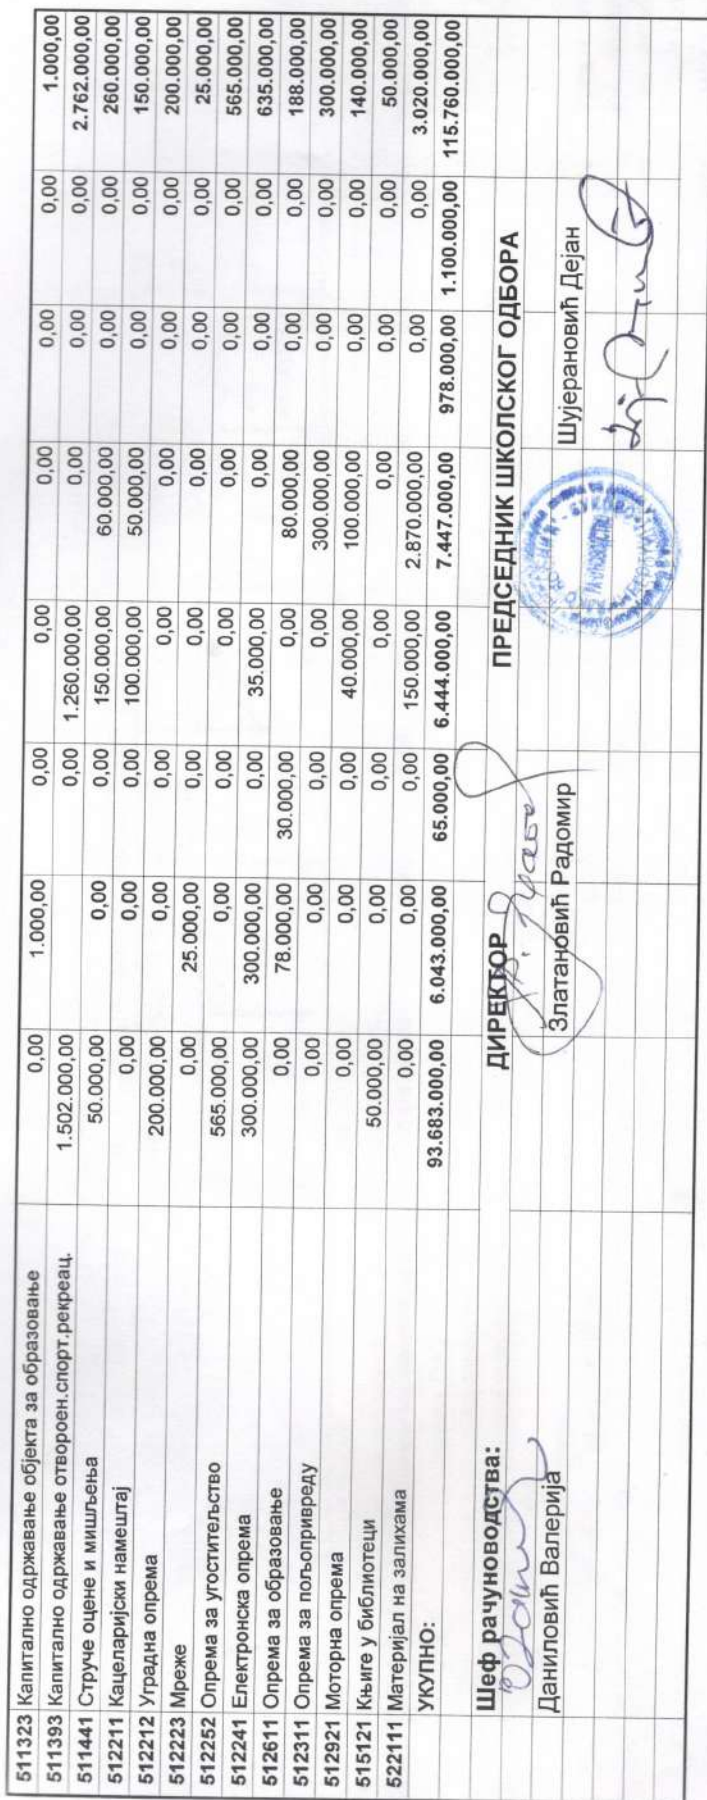 511323 Капитално одржавање објекта за образовање 0,00 1.000,00 0,00 0,00 0,00 0,00 0,00 1.000,00
511393 Капитално одржавање отвороен.спорт.рекреац. 1.502.000,00 0,00 1.260.000,00 0,00 0,00 0,00 2.762.000,00
511441 Струче оцене и мишљења 50.000,00 0,00 0,00 150.000,00 60.000,00 0,00 0,00 260.000,00
512211 Кацеларијски намештај 0,00 0,00 0,00 100.000,00 50.000,00 0,00 0,00 150.000,00
512212 Уградна опрема 200.000,00 0,00 0,00 0,00 0,00 0,00 0,00 200.000,00
512223 Мреже 0,00 25.000,00 0,00 0,00 0,00 0,00 0,00 25.000,00
512252 Опрема за угоститељство 565.000,00 0,00 0,00 0,00 0,00 0,00 0,00 565.000,00
512241 Електронска опрема 300.000,00 300.000,00 0,00 35.000,00 0,00 0,00 0,00 635.000,00
512611 Опрема за образовање 0,00 78.000,00 30.000,00 0,00 80.000,00 0,00 0,00 188.000,00
512311 Опрема за пољопривреду 0,00 0,00 0,00 0,00 300.000,00 0,00 0,00 300.000,00
512921 Моторна опрема 0,00 0,00 0,00 40.000,00 100.000,00 0,00 0,00 140.000,00
515121 Књиге у библиотеци 50.000,00 0,00 0,00 0,00 0,00 0,00 0,00 50.000,00
522111 Материјал на залихама 0,00 0,00 0,00 150.000,00 2.870.000,00 0,00 0,00 3.020.000,00
УКУПНО: 93.683.000,00 6.043.000,00 65.000,00 6.444.000,00 7.447.000,00 978.000,00 1.100.000,00 115.760.000,00
Шеф рачуноводства: ДИРЕКТОР ПРЕДСЕДНИК ШКОЛСКОГ ОДБОРА
Даниловић Валерија Златановић Радомир Шујерановић Дејан